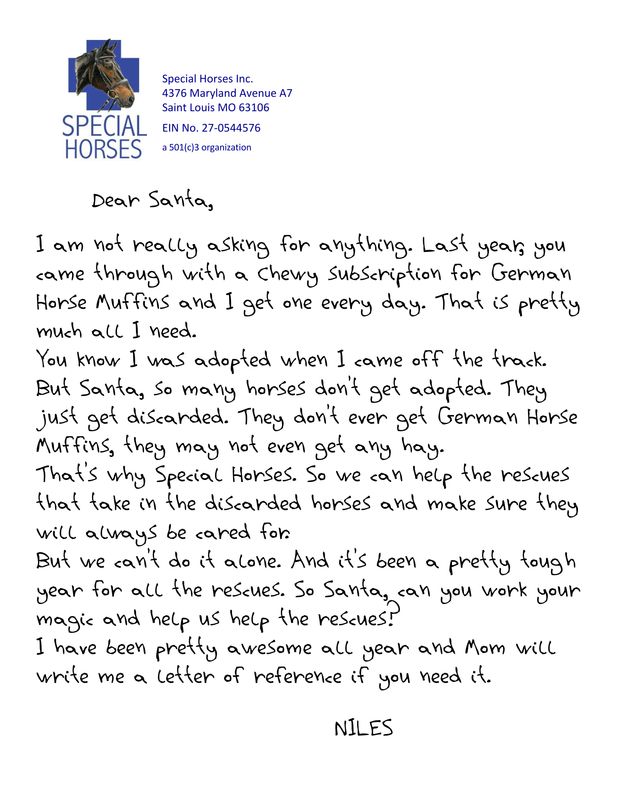 SPECIAL
HORSES
Special Horses Inc.
4376 Maryland Avenue A7
Saint Louis MO 63106
EIN No. 27-0544576
a 501(c)3 organization
Dear Santa,
I am not really asking for anything. Last year, you
came through with a Chewy subscription for German
Horse Muffins and I get one every day. That is pretty
much all I need.
You know I was adopted when I came off the track.
But Santa, so many horses don't get adopted. They
just get discarded. They don't ever get German Horse
Muffins, they may not even get any hay.
That's why Special Horses. So we can help the rescues
that take in the discarded horses and make sure they
will always be cared for.
But we can't do it alone. And it's been a pretty tough
year for all the rescues. So Santa, can you work your
magic and help us help the rescues?
I have been pretty awesome all year and Mom will
write me a letter of reference if you need it.
NILES